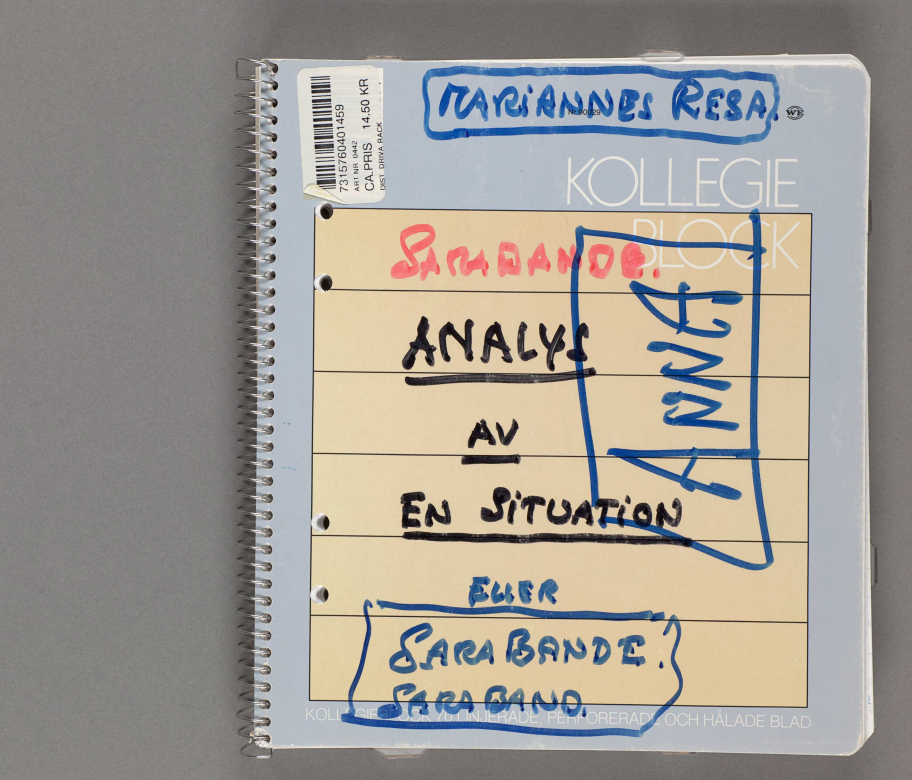 MARIANNES RESA.
Nr 90029
WE
7315760401459
ART.NR 0442
CA.PRIS 14.50 KR
DIST. DRIVA RACK
KOLLEGIE
BLOCK
SARABANDE.
ANNA
ANALYS
AV
EN SITUATION
ELLER
SARABANDE.
SARABAND.
KOLLEGIEBLOCK 70 LINJERADE, PERFORERADE OCH HÅLADE BLAD